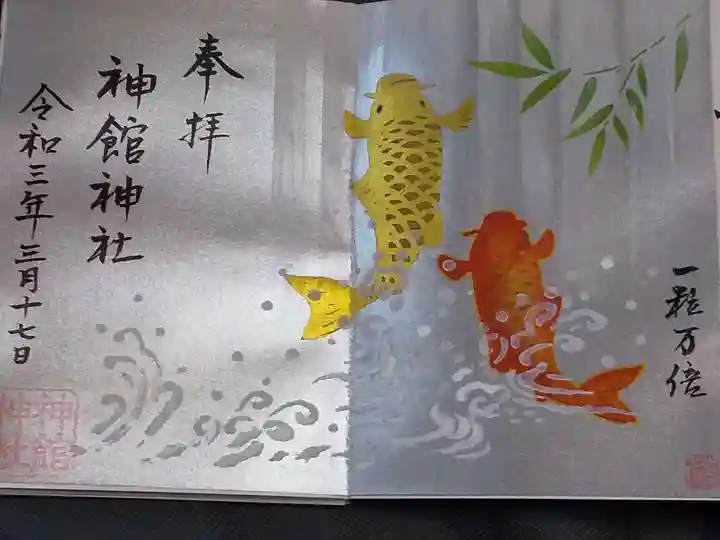 一粒万倍
奉拝
神館神社
令和三年三月十七日
神館
神社